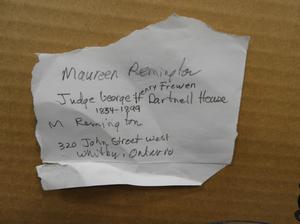 Maureen Remington
Judge George Henry Frewen Dartnell House
1834-1899
M Remington
320 John Street West
Whitby, Ontario